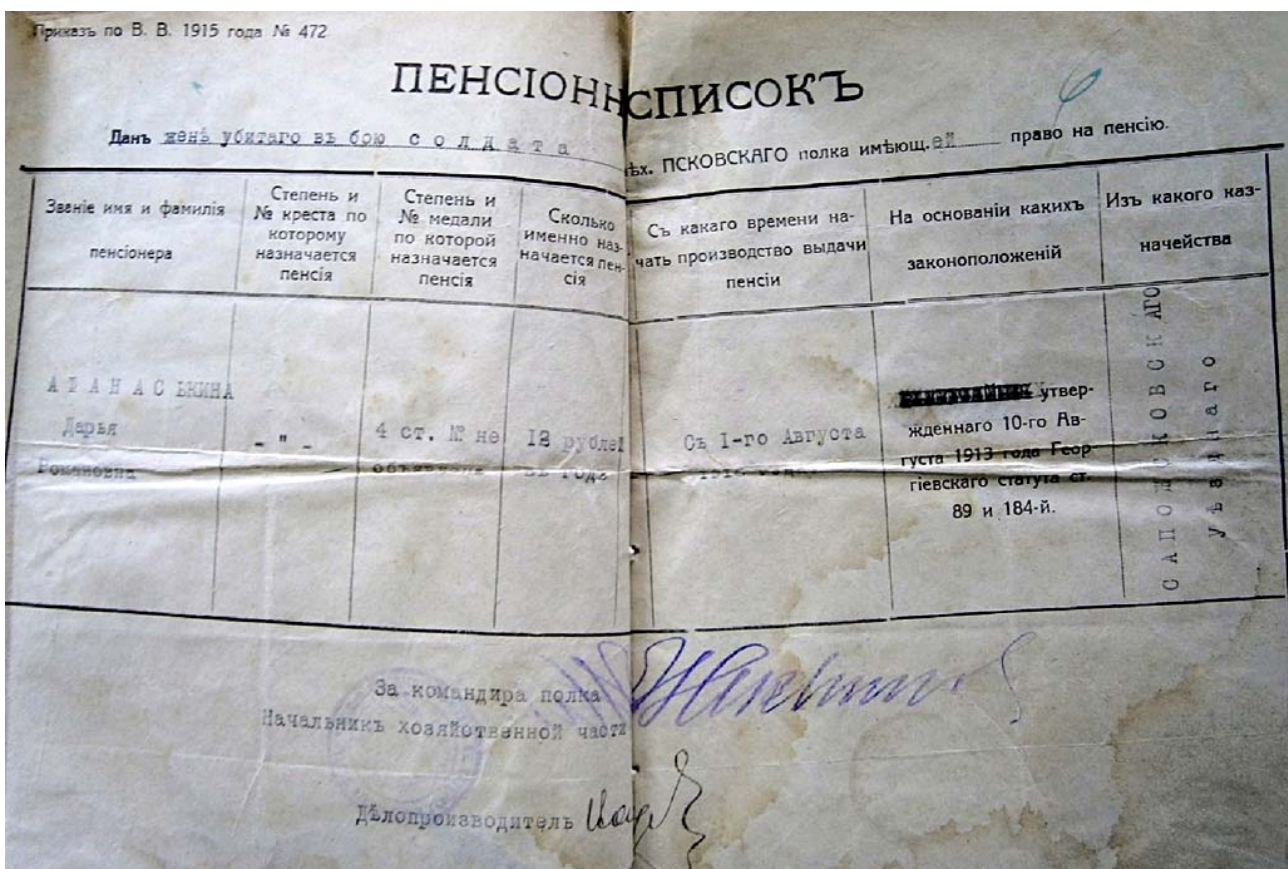 Приказъ по В. В. 1915 года № 472
ПЕНСІОНН СПИСОКЪ
Данъ женѣ убитаго въ бою солдата ѣх. ПСКОВСКАГО полка имѣющ.ей право на пенсію.
Званіе имя и фамилія
пенсіонера
Степень и
№ креста по
которому
назначается
пенсія
Степень и
№ медали
по которой
назначается
пенсія
Сколько
именно наз-
начается пен-
сія
Съ какаго времени на-
чать производство выдачи
пенсіи
На основаніи какихъ
законоположеній
Изъ какого каз-
начейства
АФАНАСЬКИНА
Дарья
Романовна
- " -
4 ст. № не
объявлена
12 рублей
въ годъ
Съ I-го Августа
утвер-
жденнаго 10-го Ав-
густа 1913 года Геор-
гіевскаго статута ст.
89 и 184-й.
САПОЖКОВСКАГО
уѣзднаго
За командира полка
Начальникъ хозяйственной части
Дѣлопроизводитель